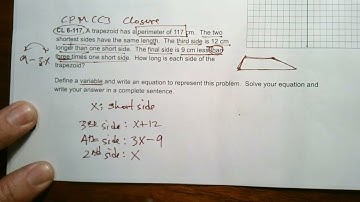 CPM CC3 Closure
CL 6-117. A trapezoid has a perimeter of 117 cm. The two
shortest sides have the same length. The third side is 12 cm
longer than one short side. The final side is 9 cm less than
three times one short side. How long is each side of the
trapezoid?
9-3x
Define a variable and write an equation to represent this problem. Solve your equation and
write your answer in a complete sentence.
x: short side
3rd side: x+12
4th side: 3x-9
2nd side: x